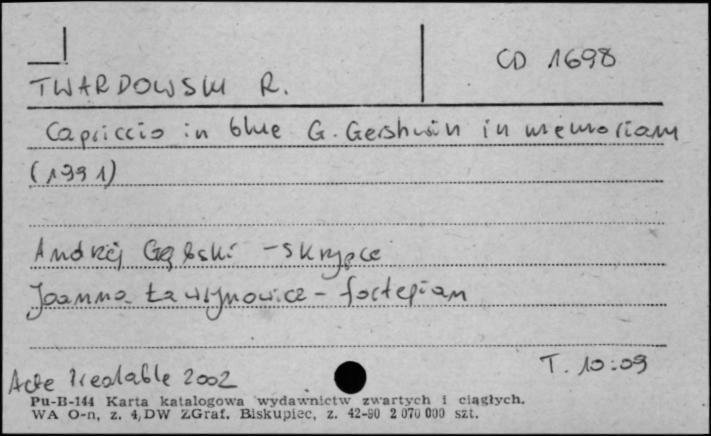 CD 1698
TWARDOWSKI R.
Capriccio in blue G. Gershwin in memoriam
(1991)
Andrzej Gębski - skrzypce
Joanna Ławrynowicz - fortepian
T. 10:09
Acte Préalable 2002
Pu-B-144 Karta katalogowa wydawnictw zwartych i ciągłych.
WA O-n, z. 4, DW ZGraf. Biskupiec, z. 42-90 2 070 000 szt.